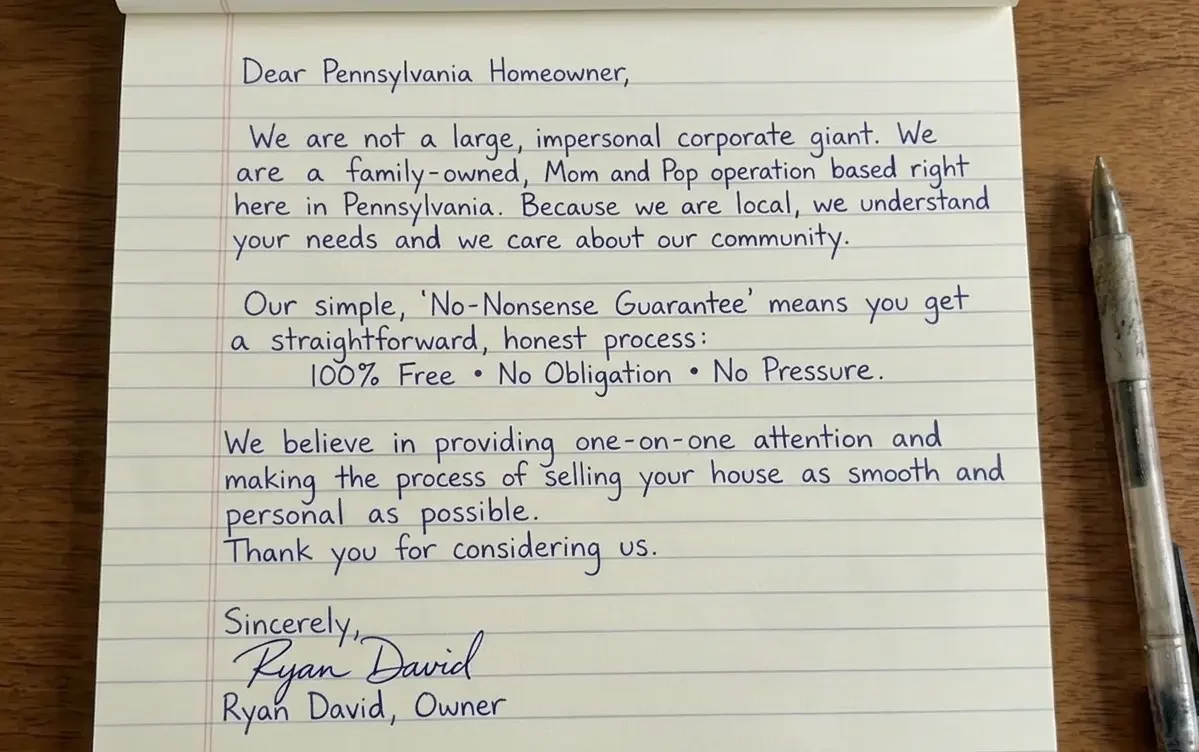 Dear Pennsylvania Homeowner,
We are not a large, impersonal corporate giant. We
are a family-owned, Mom and Pop operation based right
here in Pennsylvania. Because we are local, we understand
your needs and we care about our community.
Our simple, 'No-Nonsense Guarantee' means you get
a straightforward, honest process:
100% Free • No Obligation • No Pressure.
We believe in providing one-on-one attention and
making the process of selling your house as smooth and
personal as possible.
Thank you for considering us.
Sincerely,
Ryan David
Ryan David, Owner